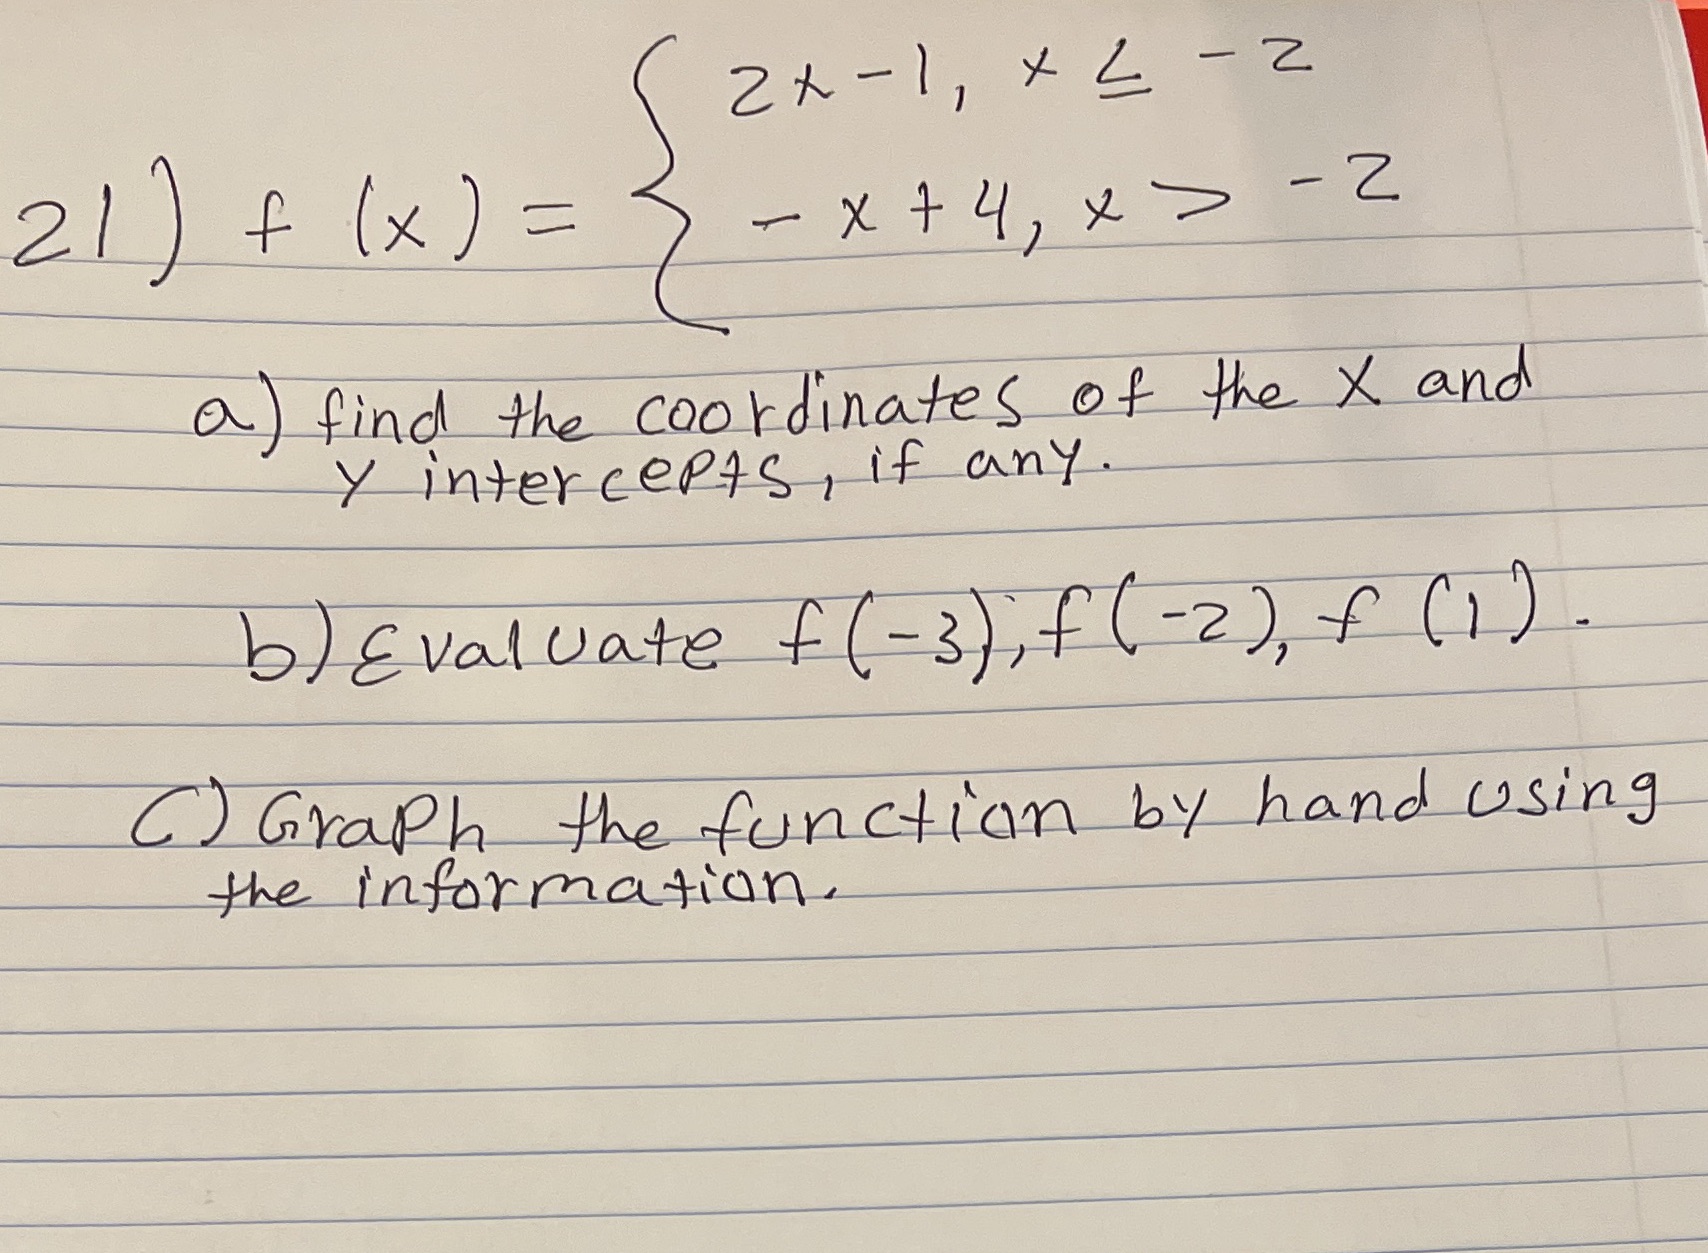 21) f(x) = { 2x-1, x ≤ -2
-x+4, x > -2
a) find the coordinates of the x and
y intercepts, if any.
b) Evaluate f(-3), f(-2), f(1).
C) Graph the function by hand using
the information.